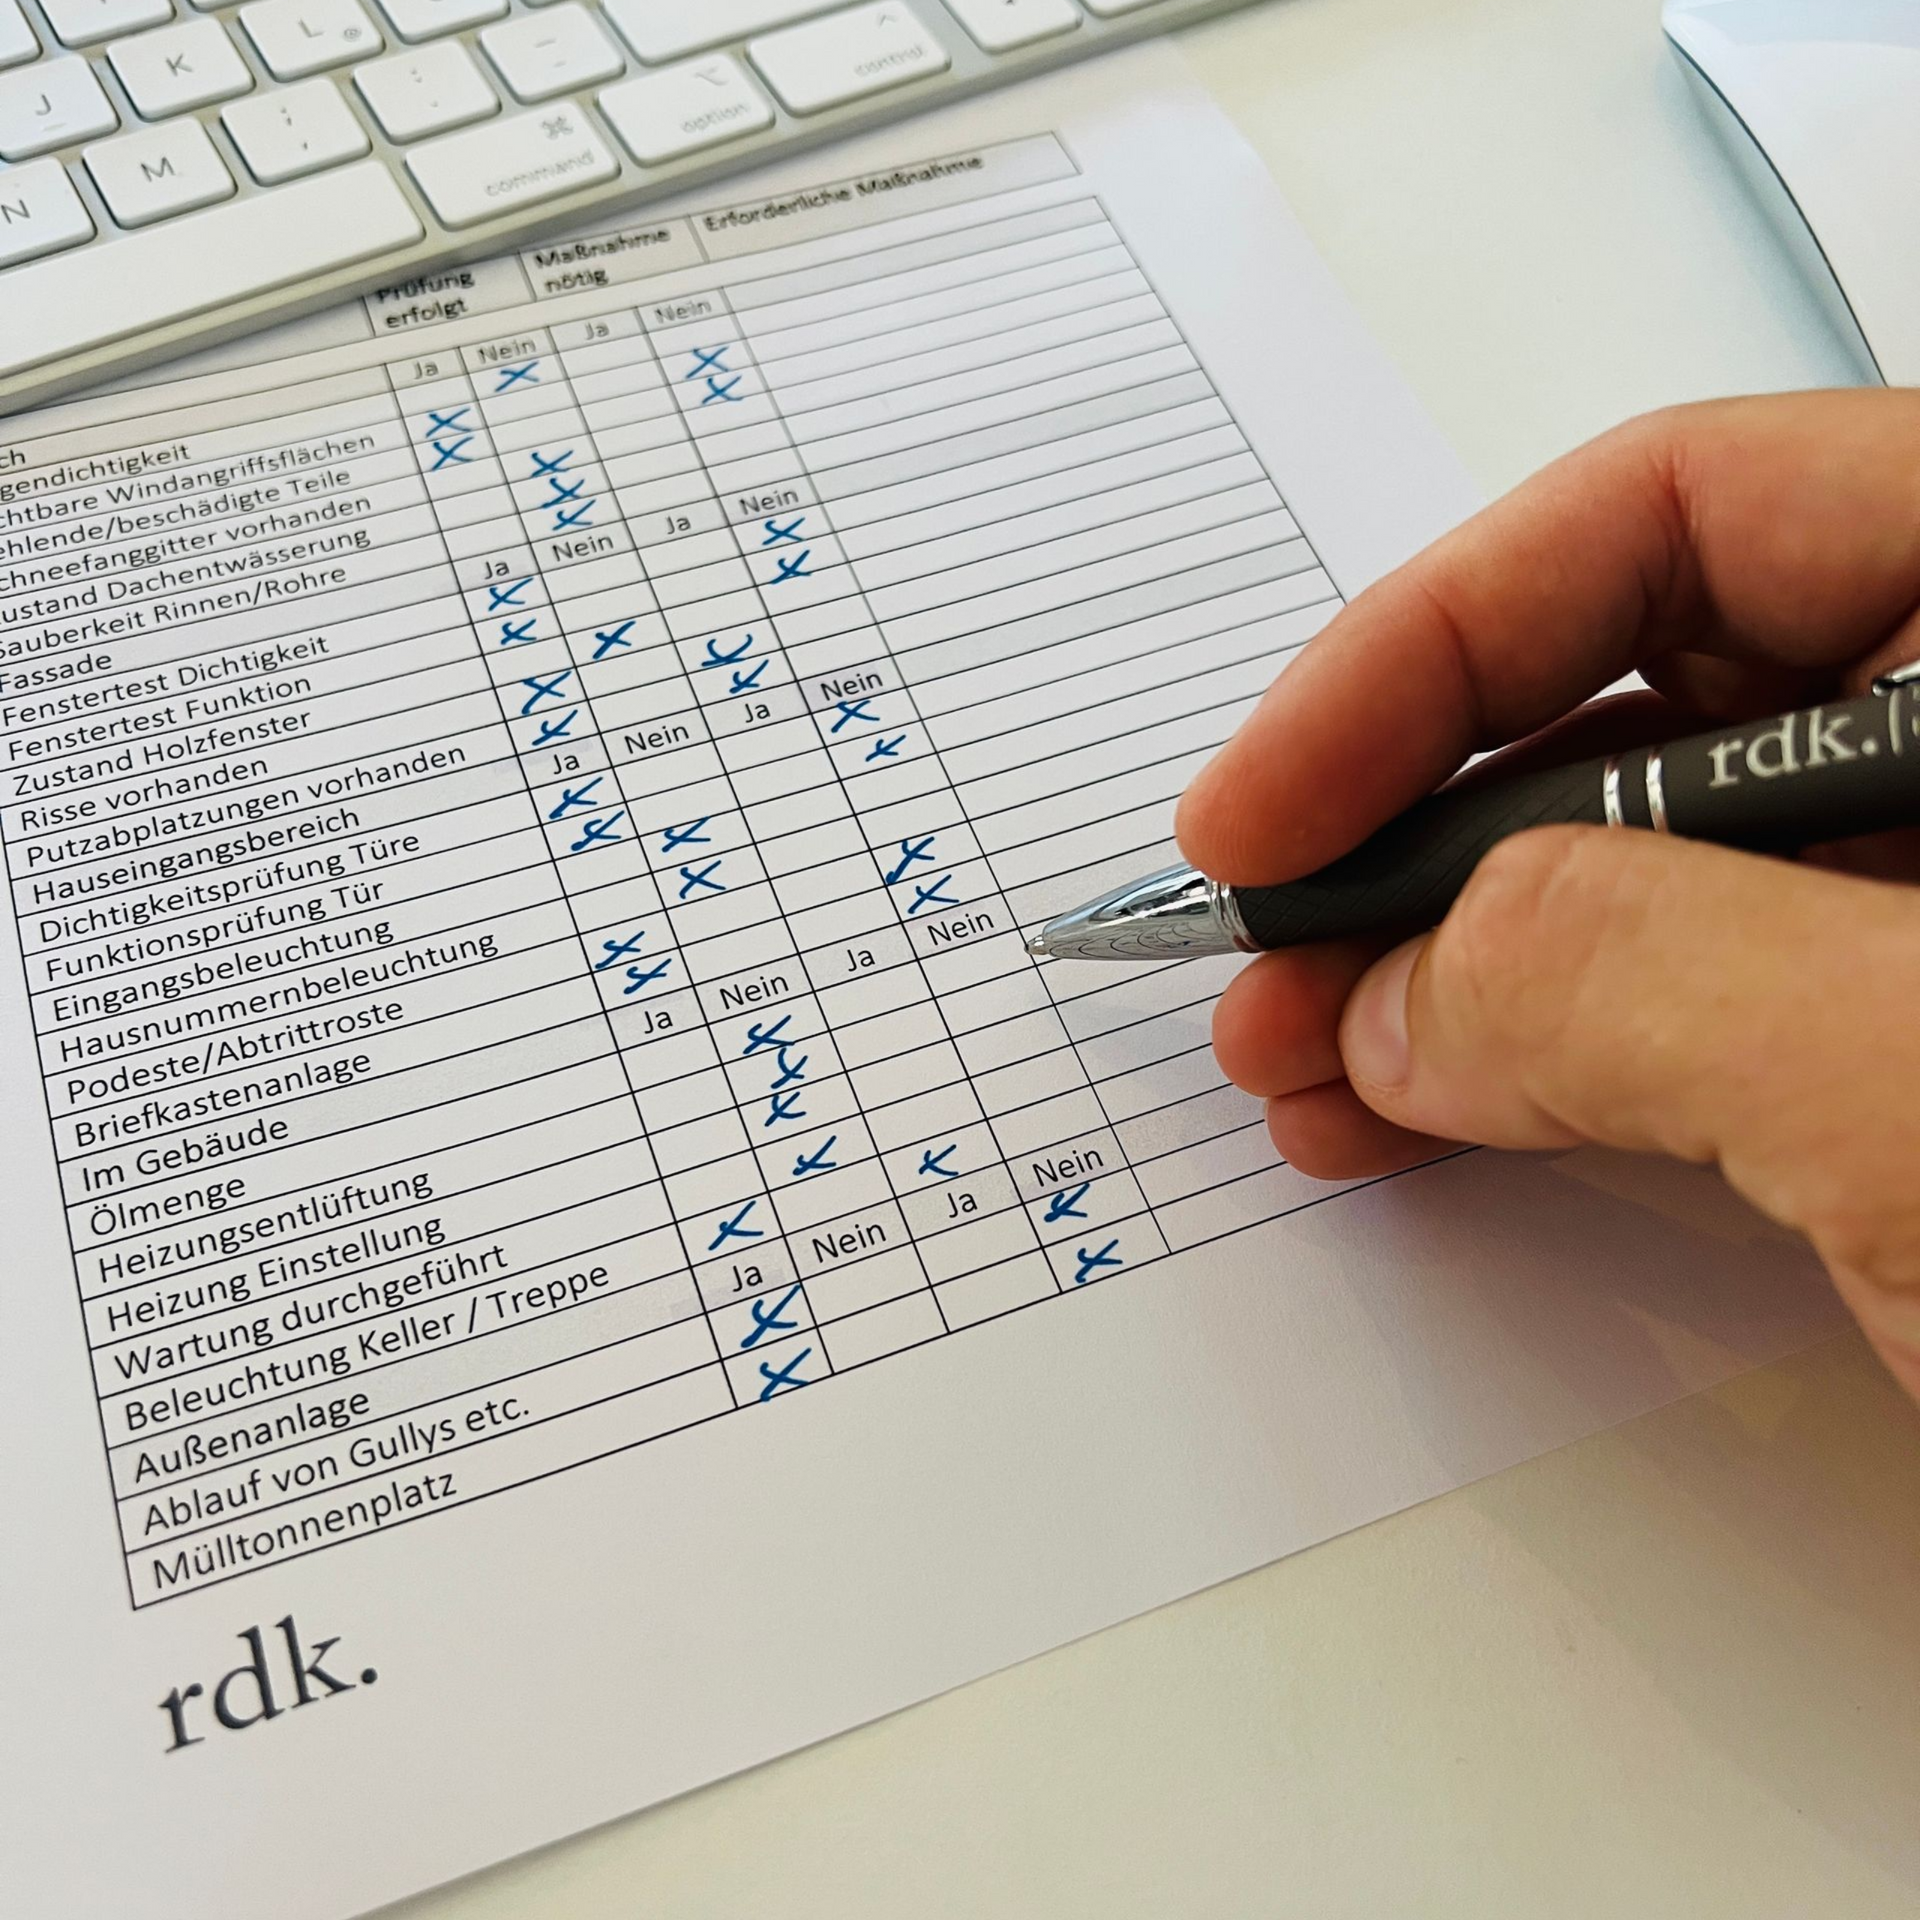 J K L @
N M ; , : .
command option control
Prüfung erfolgt Maßnahme nötig Erforderliche Maßnahme
Ja Nein Ja Nein
ch
gendichtigkeit
chtbare Windangriffsflächen
ehlende/beschädigte Teile
chneefanggitter vorhanden
ustand Dachentwässerung
Sauberkeit Rinnen/Rohre
Fassade Ja Nein Ja Nein
Fenstertest Dichtigkeit
Fenstertest Funktion
Zustand Holzfenster
Risse vorhanden
Putzabplatzungen vorhanden
Hauseingangsbereich Ja Nein Ja Nein
Dichtigkeitsprüfung Türe
Funktionsprüfung Tür
Eingangsbeleuchtung
Hausnummernbeleuchtung
Podeste/Abtrittroste
Briefkastenanlage
Im Gebäude Ja Nein Ja Nein
Ölmenge
Heizungsentlüftung
Heizung Einstellung
Wartung durchgeführt
Beleuchtung Keller / Treppe
Außenanlage Ja Nein Ja Nein
Ablauf von Gullys etc.
Mülltonnenplatz
rdk.
rdk.